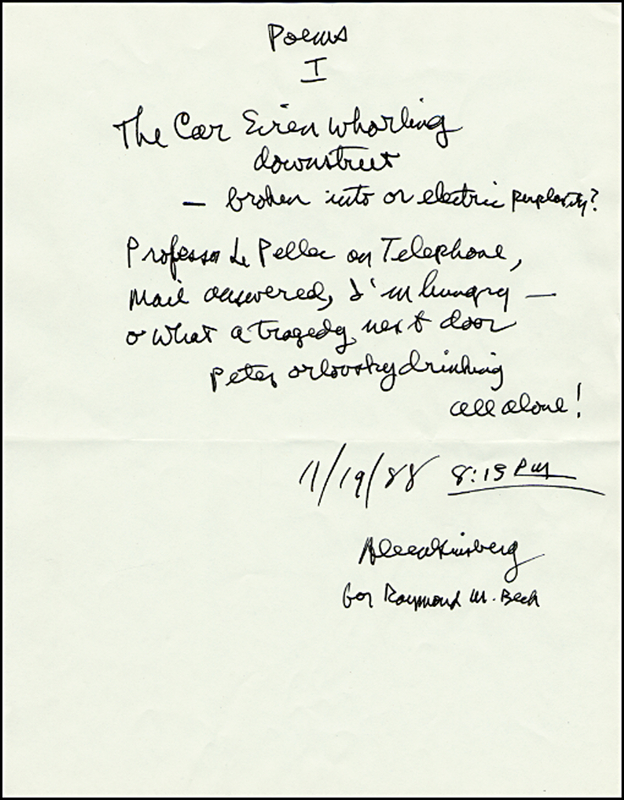 Poems
I
The Car Siren whorling
downstreet
— broken into or electric perplexity?
Professor Le Pellec on Telephone,
Mail answered, I'm hungry —
o what a tragedy next door
Peter orlovsky drinking
all alone!
11/19/88 8:15 PM
Allen Ginsberg
for Raymond M. Beck